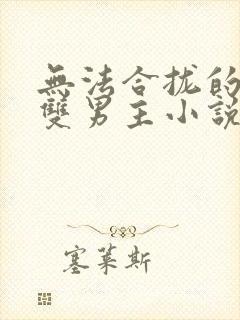 無法合拢的
雙男主小說
塞莱斯